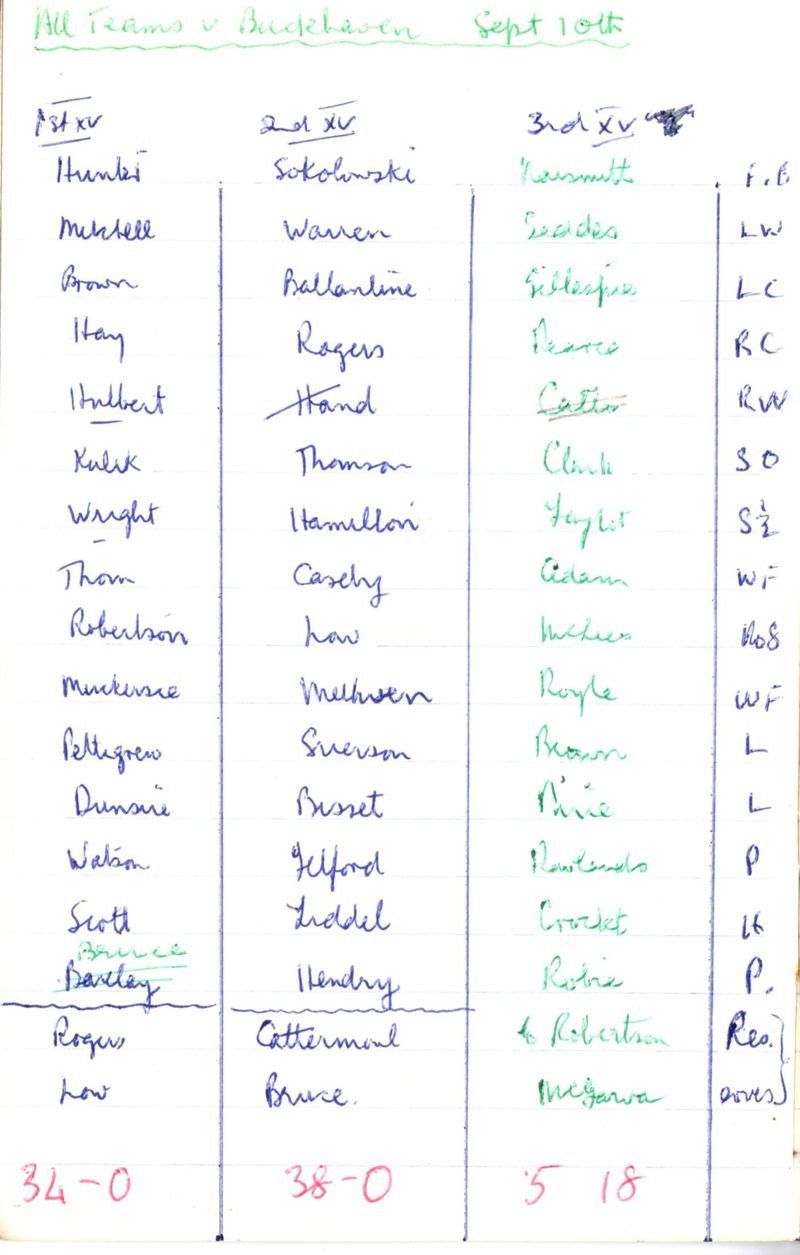 All Teams v Buckhaven Sept 10th
1st XV 2nd XV 3rd XV
Hunter Sokolowski Naismith F.B
Mitchell Warren Geddes LW
Brown Ballantine Gillespie LC
Hay Rogers Pearce RC
Hulbert Hand RW
Kulik Thomson Clark SO
Wright Hamilton Taylor S½
Thom Caseby Adam WF
Robertson Low McLees No8
Muckersie Methven Royle WF
Pettigrew Syerson Brown L
Dunsire Bisset Pirie L
Watson Telford Rowlands P
Scott Liddel Crocket H
Bruce
Barclay Hendry Robie P.
Rogers Cattermoul Robertson Res.
Low Bruce. McGarva erves
34-0 38-0 5 18